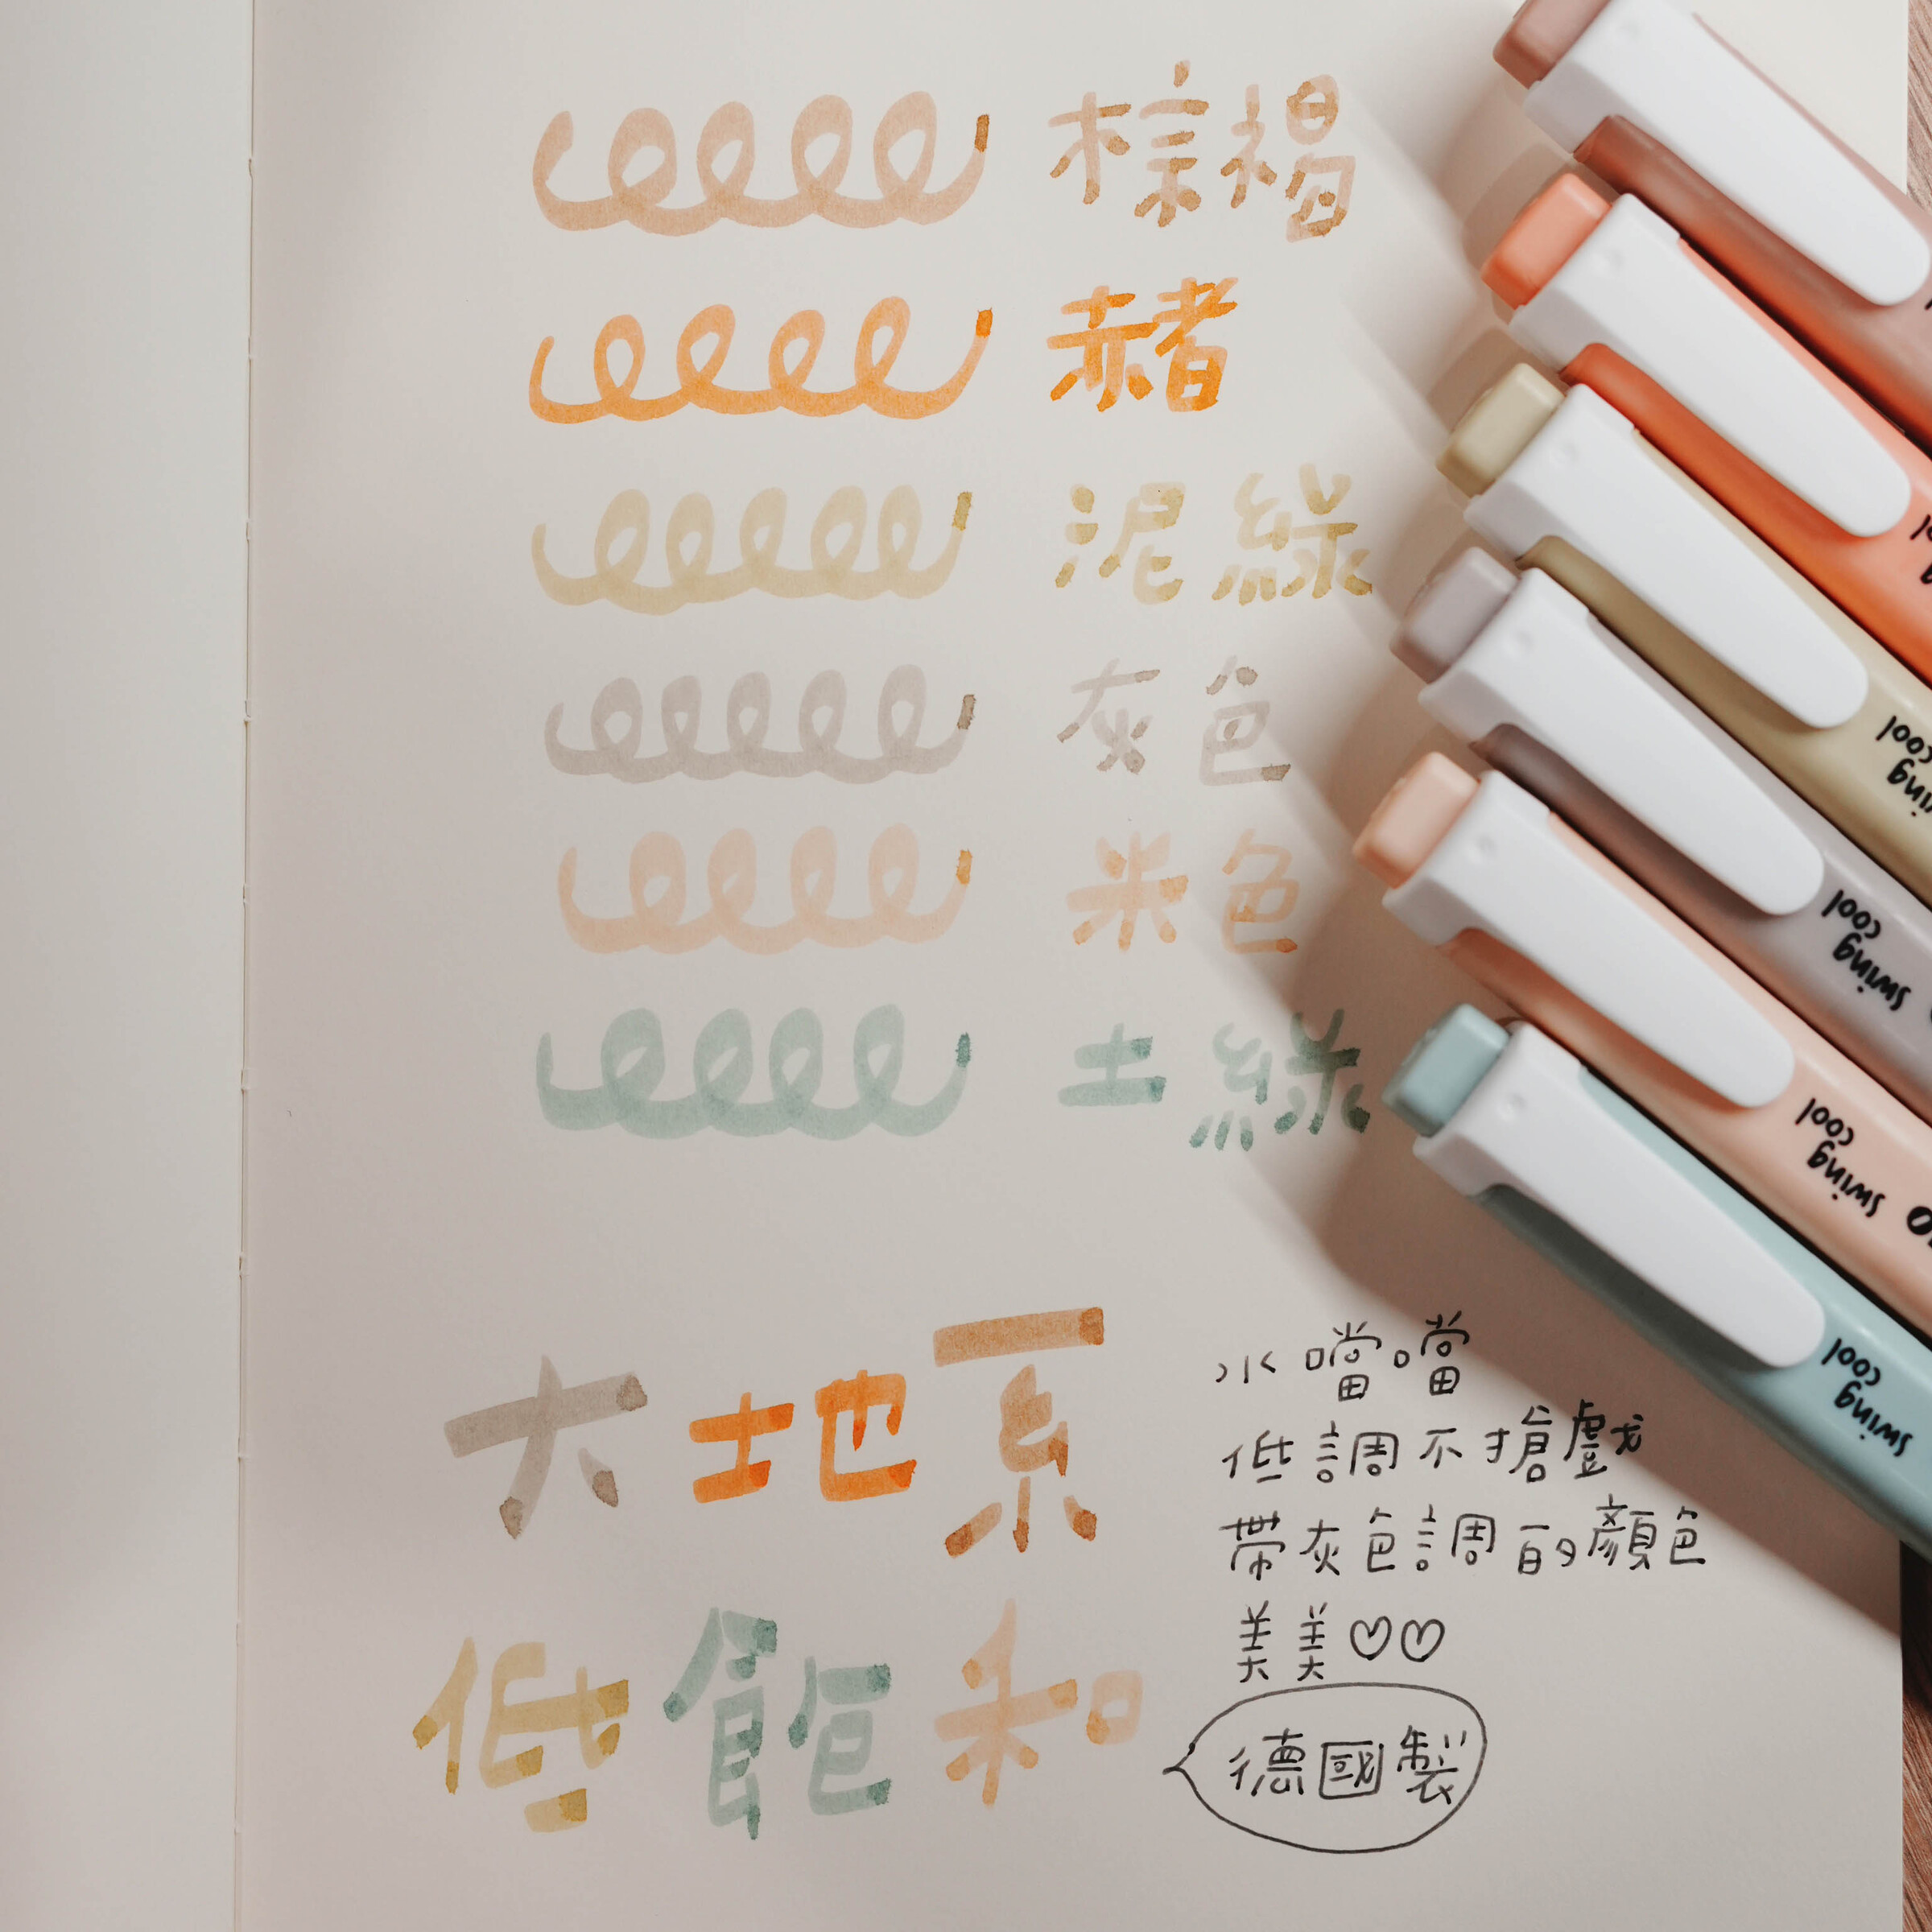 棕褐
赭
泥綠
灰色
米色
土綠
大地系
低飽和
水噹噹
低調不搶戲
帶灰色調的顏色
美美♡♡
德國製
swing cool
swing cool
swing cool
swing cool